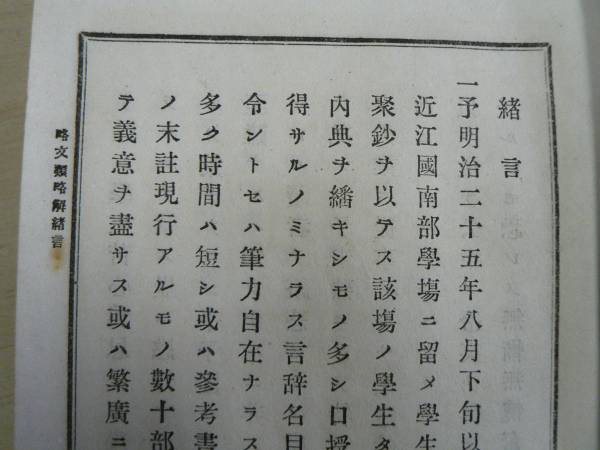 緒言
一予明治二十五年八月下旬以
近江國南部學塲ニ留メ學生
聚鈔ヲ以テス該塲ノ學生タ
內典ヲ繙キシモノ多シ口授
得サルノミナラス言辞名目
令ントセハ筆力自在ナラス
多ク時間ハ短シ或ハ參考書
ノ末註現行アルモノ數十部
テ義意ヲ盡サス或ハ繁廣ニ
略文類略解緒言